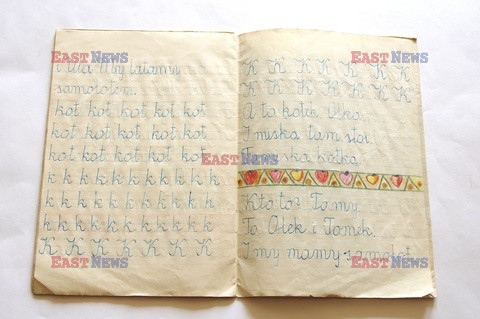 i Ala My latamy
samolotem.
kot kot kot kot kot
kot kot kot kot kot
kot kot kot kot kot
k k k k k k k k k k
k k k k k k k k k k
k k k k k k k k k k
K K K K K K K
K K K K K K K
K K K K K K K
A to kotek Olka.
I miska tam stoi.
To miska kotka.
Kto to? To my.
To Olek i Tomek.
I my mamy samolot.
EAST NEWS
EAST NEWS
EAST NEWS
EAST NEWS
EAST NEWS